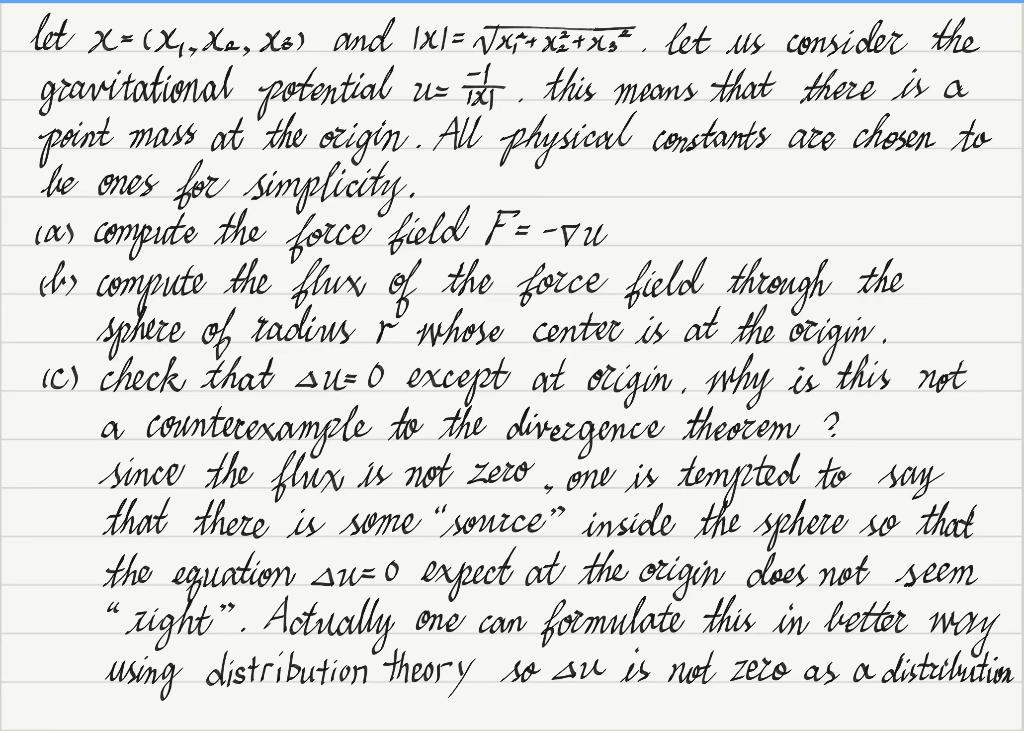 let x=(x₁,x₂,x₃) and |x|=√x₁²+x₂²+x₃². let us consider the
gravitational potential u=-1/|x|. this means that there is a
point mass at the origin. All physical constants are chosen to
be ones for simplicity.
(a) compute the force field F=-∇u
(b) compute the flux of the force field through the
sphere of radius r whose center is at the origin.
(c) check that Δu=0 except at origin. why is this not
a counterexample to the divergence theorem?
since the flux is not zero, one is tempted to say
that there is some "source" inside the sphere so that
the equation Δu=0 expect at the origin does not seem
"right". Actually one can formulate this in better way
using distribution theory so Δu is not zero as a distribution